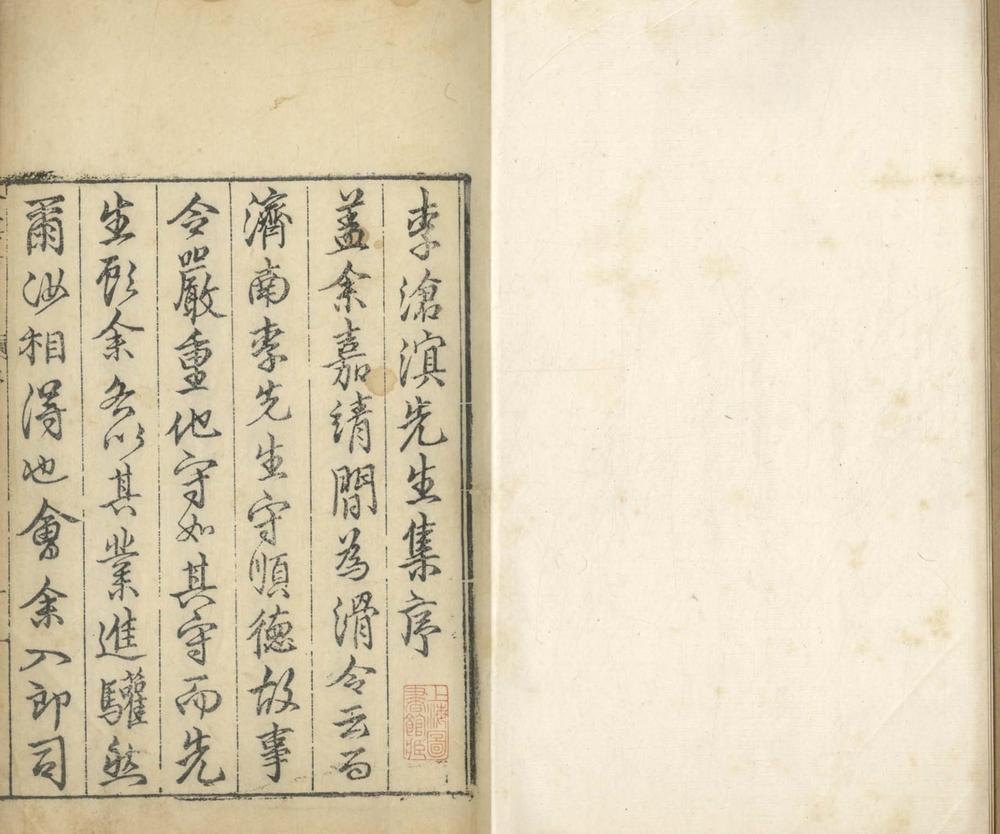 李滄溟先生集序
蓋余嘉靖間為滑令云而
濟南李先生守順德故事
令嚴重他守如其守而先
生彨余各以其業進驩然
爾汝相得也會余入郎司
上海圖
書館藏